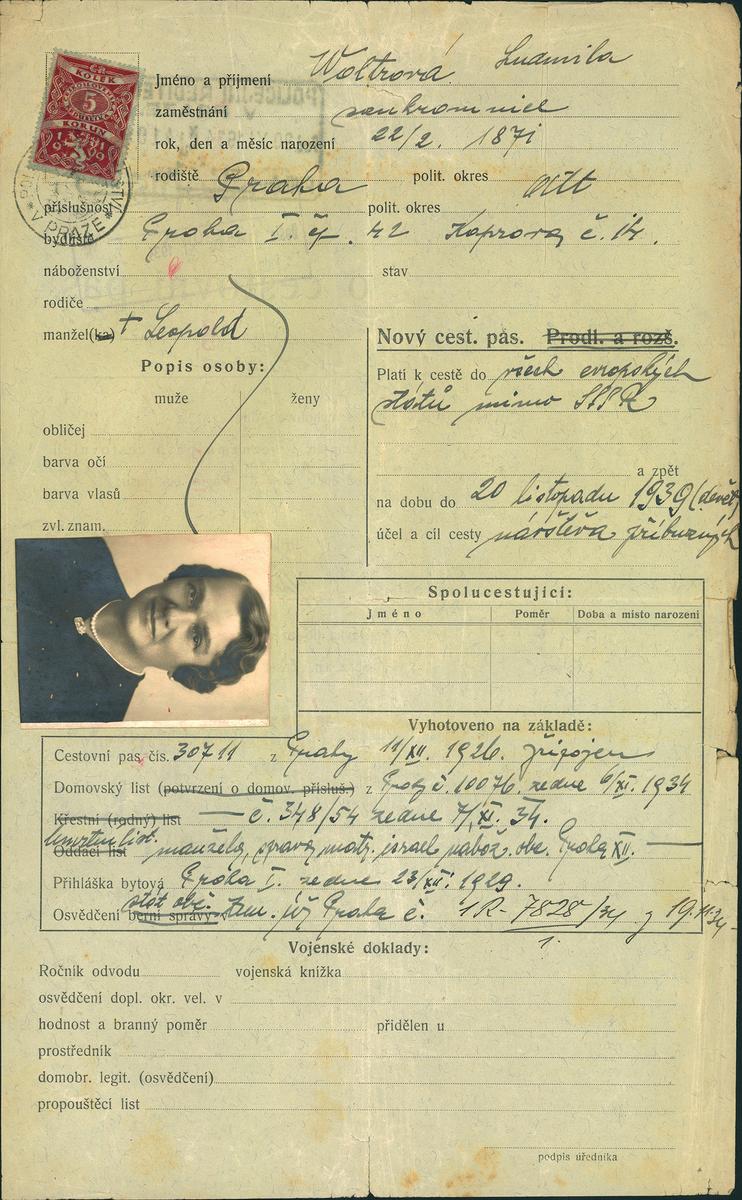 KOLEK
5
KORUN
V PRAZE
Jméno a příjmení Woltrová Ludmila
zaměstnání soukromnice
rok, den a měsíc narození 22/2. 1871
rodiště Praha polit. okres
příslušnost polit. okres dtt
bydliště Praha I. čp. 42 Kaprova č. 14.
náboženství stav
rodiče
manžel(ka) + Leopold
Nový cest. pas. Prodl. a rozš.
Popis osoby:
muže ženy
obličej
barva očí
barva vlasů
zvl. znam.
Platí k cestě do všech evropských
států mimo SSSR
a zpět
na dobu do 20 listopadu 1939 (devět)
účel a cíl cesty návštěva příbuzných
Spolucestující:
Jméno Poměr Doba a místo narození
Vyhotoveno na základě:
Cestovní pas čís. 30711 z Prahy 11/XII. 1926. připojen
Domovský list (potvrzení o domov. přísluš.) z Prahy č. 10076. ze dne 6/XI. 1934
Křestní (rodný) list — č. 348/54 ze dne 7/XI. 34.
Úmrtní list.
Oddací list manžela, správa matr. israel. nábož. obc. Praha XII. —
Přihláška bytová Praha I. ze dne 23/XII. 1929.
stát. obč.
Osvědčení berní správy Praha č. 1R - 7828/34 z 19.11.34
1.
Vojenské doklady:
Ročník odvodu vojenská knížka
osvědčení dopl. okr. vel. v
hodnost a branný poměr přidělen u
prostředník
domobr. legit. (osvědčení)
propouštěcí list
podpis úředníka